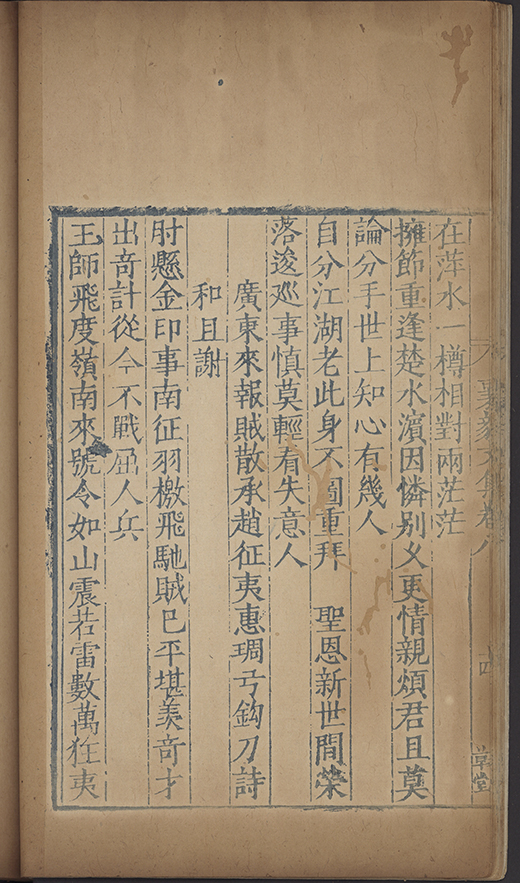 在萍水一樽相對兩茫茫
擁節重逢楚水濱因憐別乆更情親煩君且莫
論分手世上知心有幾人
自分江湖老此身不圖重拜　聖恩新世間榮
落逡巡事慎莫輕看失意人
廣東來報賊散承趙征夷惠琱弓鈎刀詩
和且謝
肘懸金印事南征羽檄飛馳賊已平堪羨奇才
出奇計從今不戰屈人兵
王師飛度嶺南來號令如山震若雷數萬狂夷
襄毅文集卷八
草堂